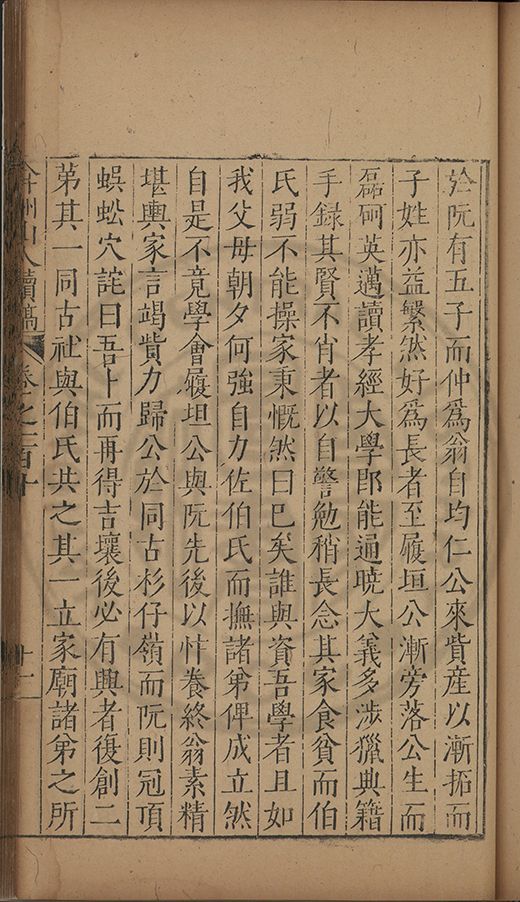 於阮有五子而仲爲翁自均仁公來貲産以漸拓而
子姓亦益繁然好爲長者至履垣公漸旁落公生而
磊砢英邁讀孝經大學卽能通曉大義多涉獵典籍
手録其賢不肖者以自警勉稍長念其家食貧而伯
氏弱不能操家秉慨然曰已矣誰與資吾學者且如
我父母朝夕何強自力佐伯氏而撫諸弟俾成立然
自是不竟學會履坦公與阮先後以忤養終翁素精
堪輿家言竭貲力歸公於同古杉仔嶺而阮則冠頂
蜈蚣穴詫曰吾卜而再得吉壤後必有興者復創二
第其一同古社與伯氏共之其一立家廟諸弟之所
弇州山人續稿 卷之一百十 十一